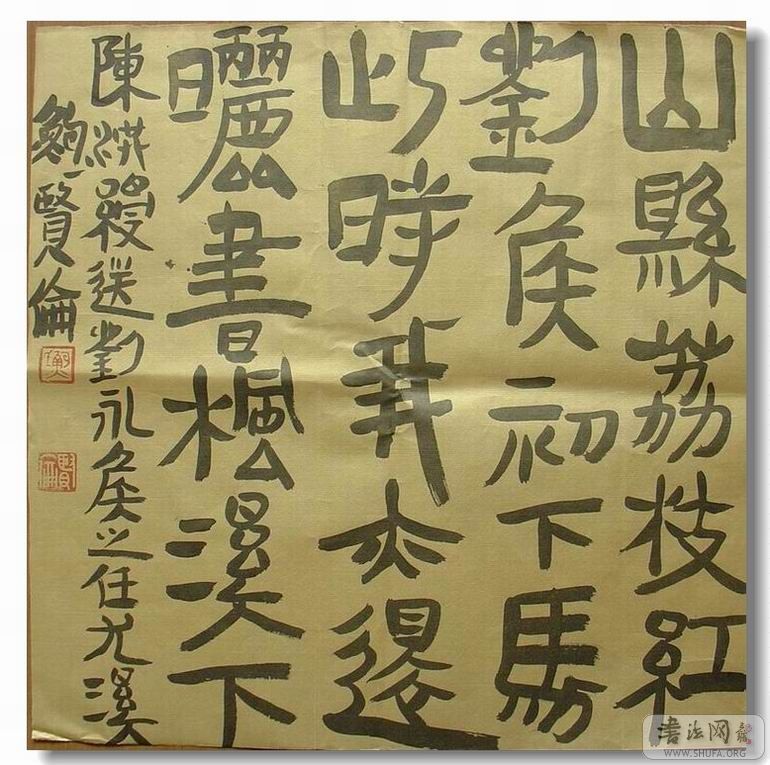 山縣荔枝紅
劉侯初下馬
此時我亦還
曬書楓溪下
陳洪綬送劉永侯之任尤溪
鮑賢倫
书法网
WWW.SHUFA.ORG